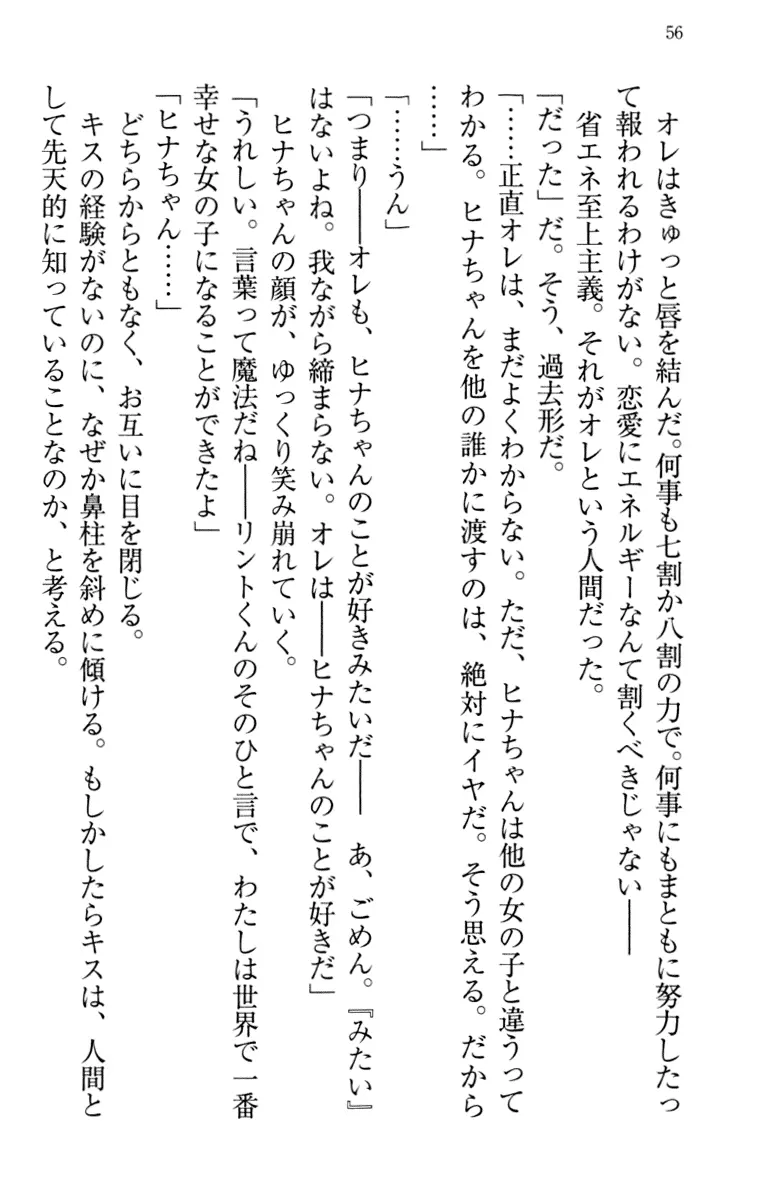 56
オレはきゅっと唇を結んだ。何事も七割か八割の力で。何事にもまともに努力したっ
て報われるわけがない。恋愛にエネルギーなんて割くべきじゃない――
省エネ至上主義。それがオレという人間だった。
「だった」だ。そう、過去形だ。
「……正直オレは、まだよくわからない。ただ、ヒナちゃんは他の女の子と違うって
わかる。ヒナちゃんを他の誰かに渡すのは、絶対にイヤだ。そう思える。だから
……」
「……うん」
「つまり――オレも、ヒナちゃんのことが好きみたいだ――　あ、ごめん。『みたい』
はないよね。我ながら締まらない。オレは――ヒナちゃんのことが好きだ」
ヒナちゃんの顔が、ゆっくり笑み崩れていく。
「うれしい。言葉って魔法だね――リントくんのそのひと言で、わたしは世界で一番
幸せな女の子になることができたよ」
「ヒナちゃん……」
どちらからともなく、お互いに目を閉じる。
キスの経験がないのに、なぜか鼻柱を斜めに傾ける。もしかしたらキスは、人間と
して先天的に知っていることなのか、と考える。